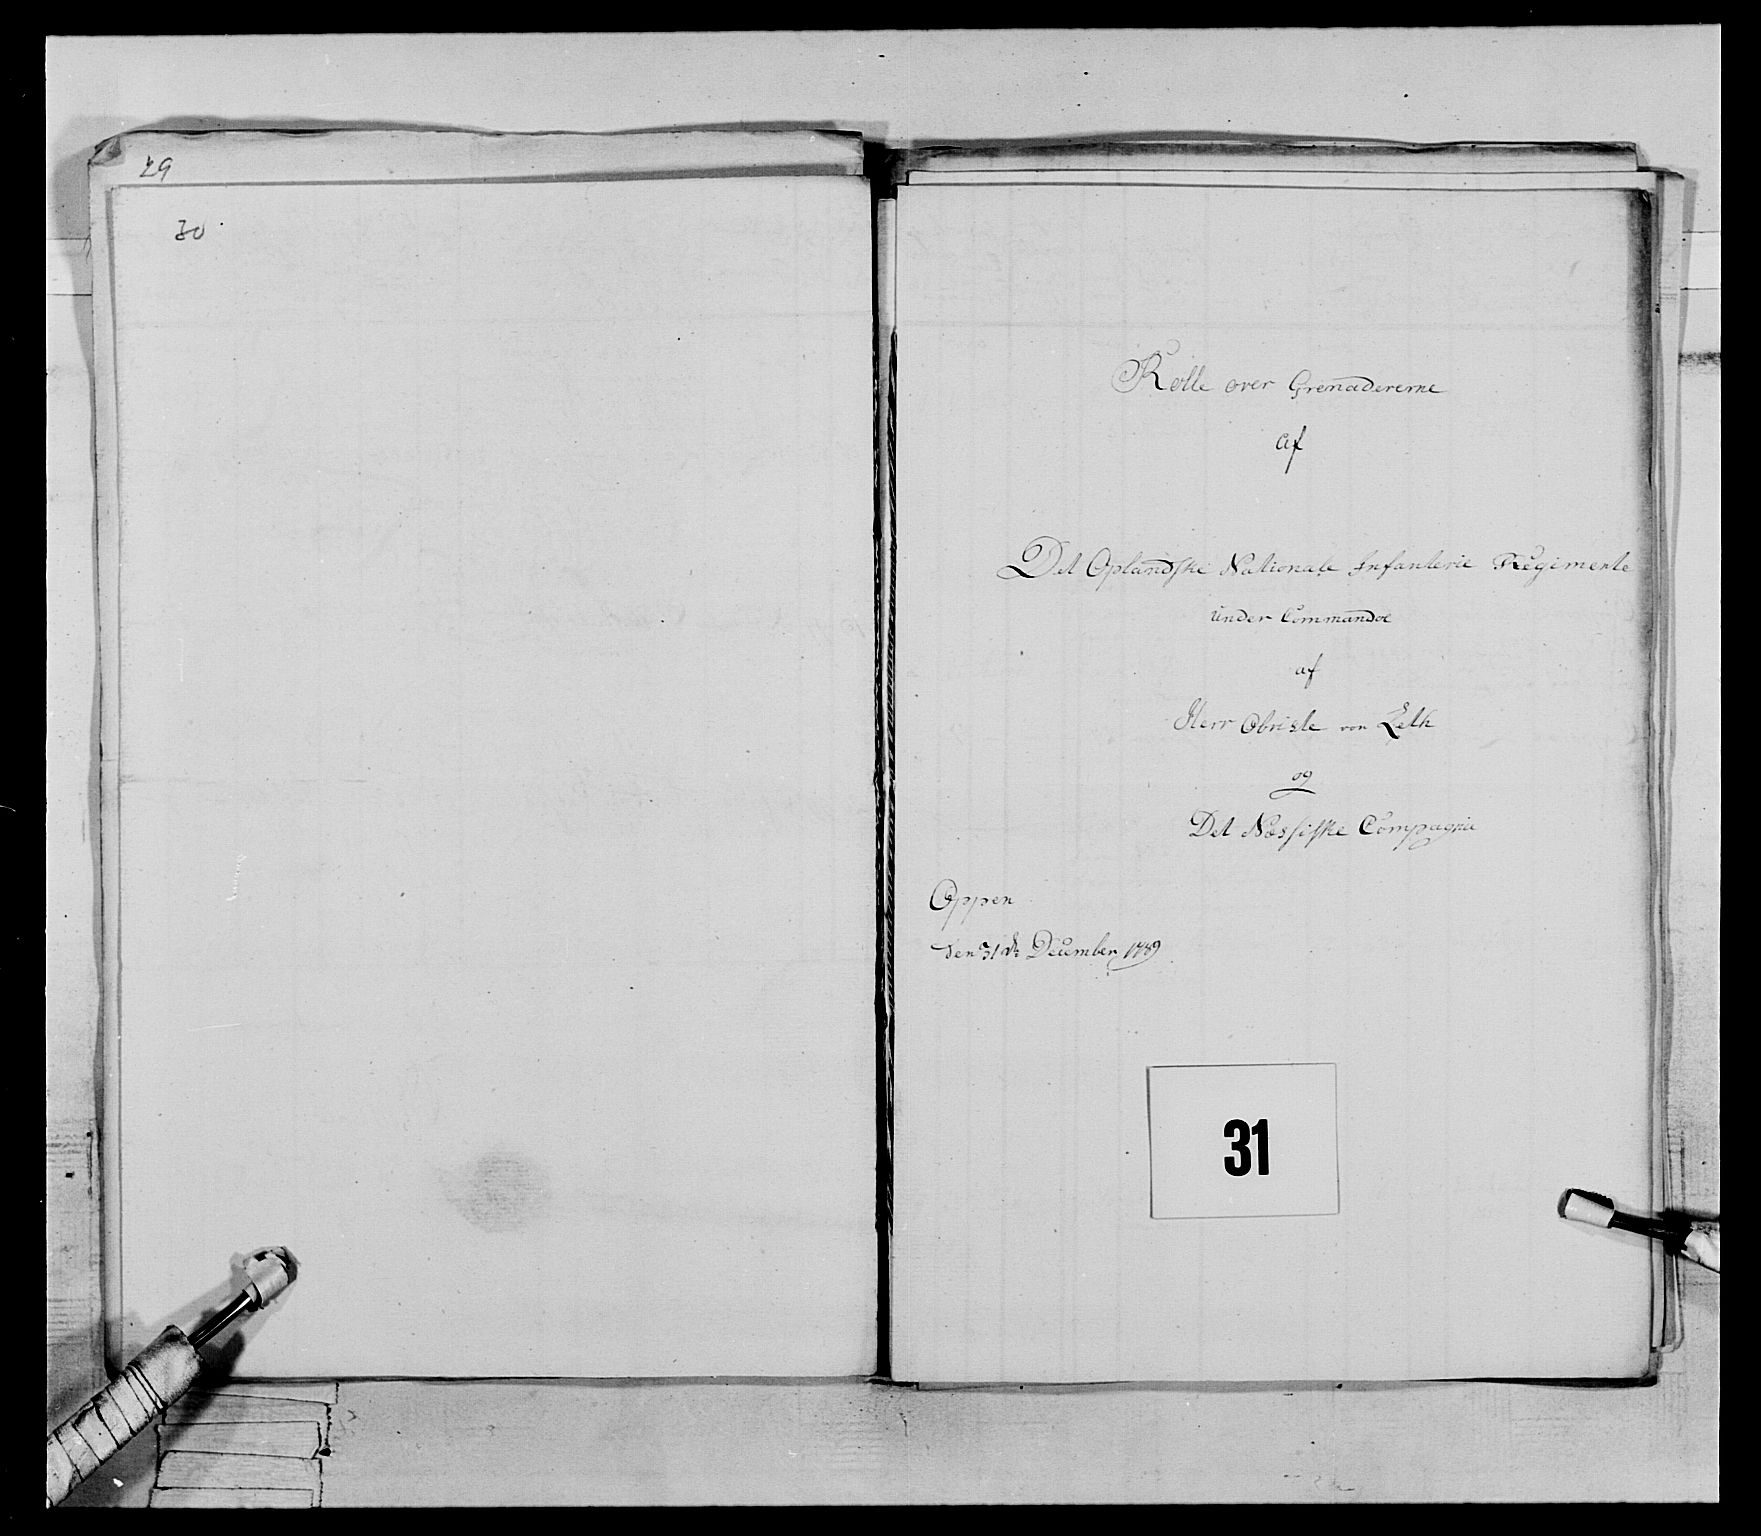 29
30
Rolle over Grenadererne
af
Det Oplandske Nationale Infanterie Regimente
under Commandoe
af
Herr Obriste von Leth
og
Det Næssiske Compagnie
Oppen
den 31 de December 1789
31